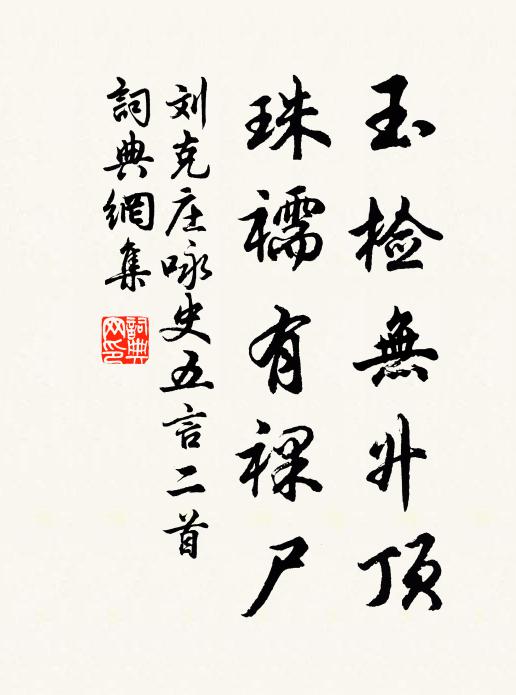 玉检無升顶
珠襦有裸尸
刘克庄咏史五言二首
詞典網集
詞典网印